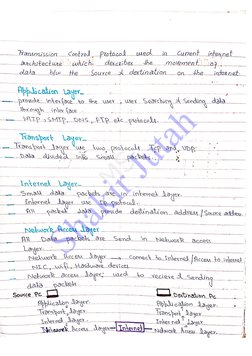 Transmission Control Protocol used in current internet
architecture which describes the movement of
data b/w the source & destination on the internet
Application Layer
provide interface to the user, user searching & sending data
through interface
HTTP, SMTP, DNS, FTP etc protocols.
Transport Layer
Transport layer use two protocols TCP and UDP.
Data divided into small packets.
Internet Layer
Small data packets are in internet layer.
Internet layer use IP protocol.
All packet data provide destination address/source address.
Network Access Layer
All Data packets are send in Network access
Layer.
Network Access layer → connect to Internet/Access to internet
NIC, wifi, Hardware devices
Network access layer; used to recieve & sending
data packets
Source Pc Destination Pc
Application layer Application layer
Transport layer Transport layer
Internet layer Internet layer
Network Access layer Internet Network Access layer